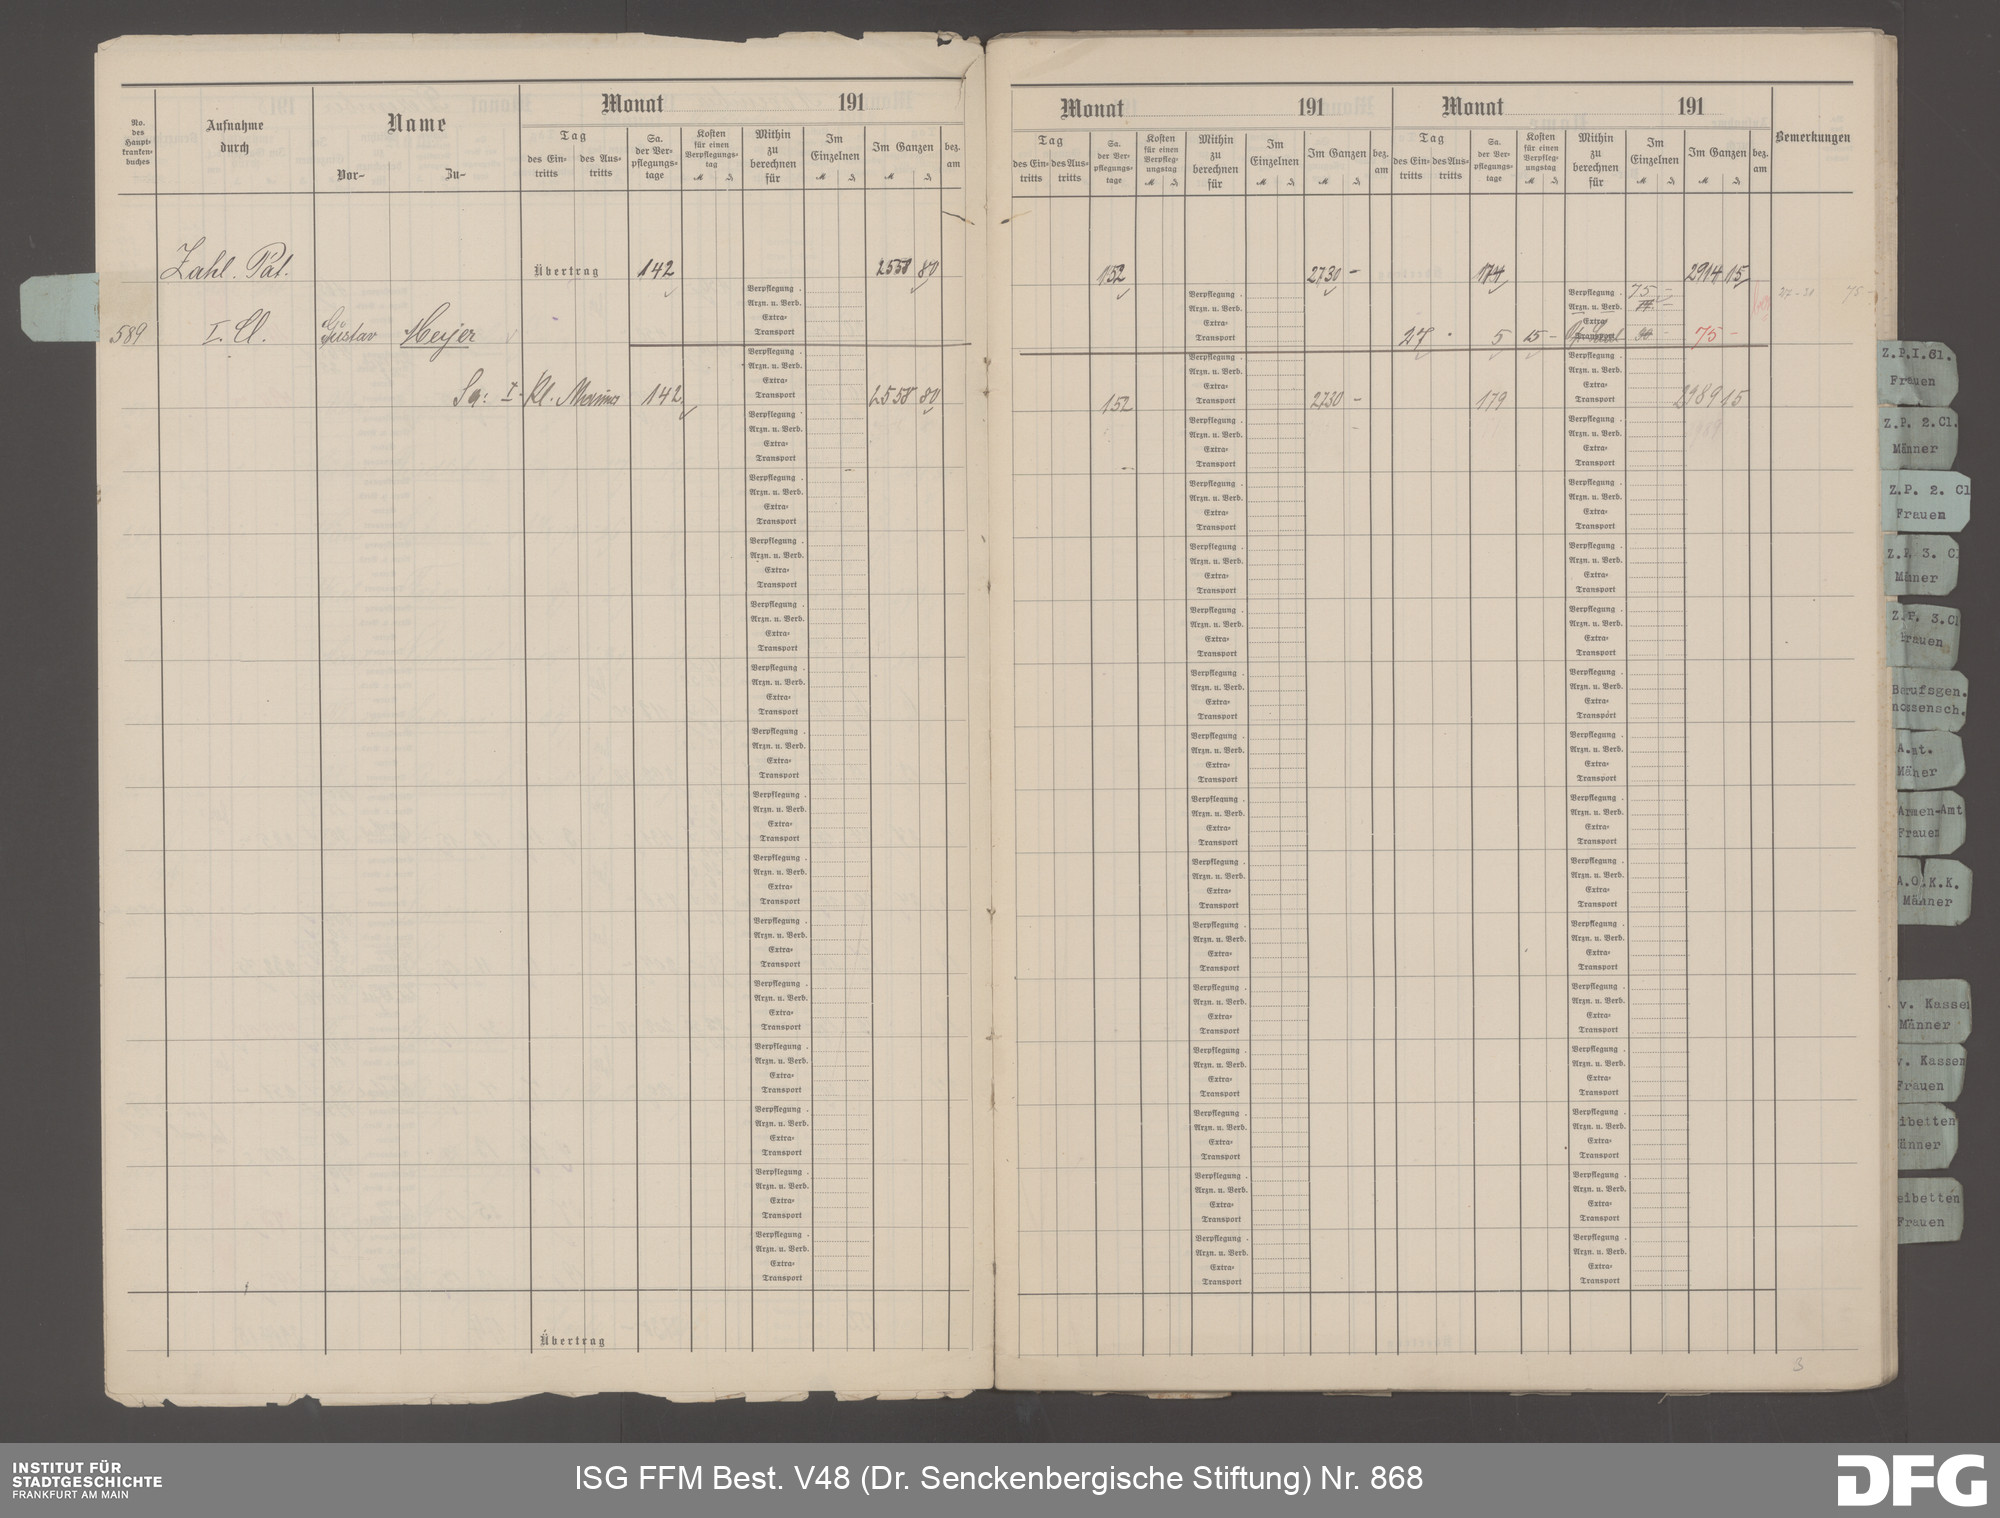 Monat 191
No. des Haupt-krankenbuches
Aufnahme durch
Name
Vor- Zu-
Tag
des Eintritts des Austritts
Sa. der Verpflegungstage
Kosten für einen Verpflegungstag
Mithin zu berechnen für
Im Einzelnen
Im Ganzen
bez. am
Zahl. Pat.
Übertrag 142 2558 80
589 I. Cl. Gustav Meyer
Verpflegung
Arzn. u. Verb.
Extra-
Transport
Sa: I. Kl. Männer 142 2558 80
Verpflegung
Arzn. u. Verb.
Extra-
Transport
Übertrag
Monat 191
Tag
des Eintritts des Austritts
Sa. der Verpflegungstage
Kosten für einen Verpflegungstag
Mithin zu berechnen für
Im Einzelnen
Im Ganzen
bez. am
Monat 191
Tag
des Eintritts des Austritts
Sa. der Verpflegungstage
Kosten für einen Verpflegungstag
Mithin zu berechnen für
Im Einzelnen
Im Ganzen
bez. am
Bemerkungen
152 2730 - 174 2914 15
Verpflegung 75 -
Arzn. u. Verb.
Extra-
Transport
27 5 15 - 75 -
27-31 75 -
152 2730 - 179 2989 15
Verpflegung
Arzn. u. Verb.
Extra-
Transport
3
Z.P.I.Cl.
Frauen
Z.P. 2.Cl.
Männer
Z.P. 2. Cl
Frauen
Z.P. 3. Cl
Männer
Z.P. 3.Cl
Frauen
Berufsgen.
nossensch.
A.mt.
Mäner
Armen-Amt
Frauen
A.O.K.K.
Männer
v. Kassen
Männer
v. Kassen
Frauen
eibetten
Männer
eibetten
Frauen
INSTITUT FÜR
STADTGESCHICHTE
FRANKFURT AM MAIN
ISG FFM Best. V48 (Dr. Senckenbergische Stiftung) Nr. 868
DFG